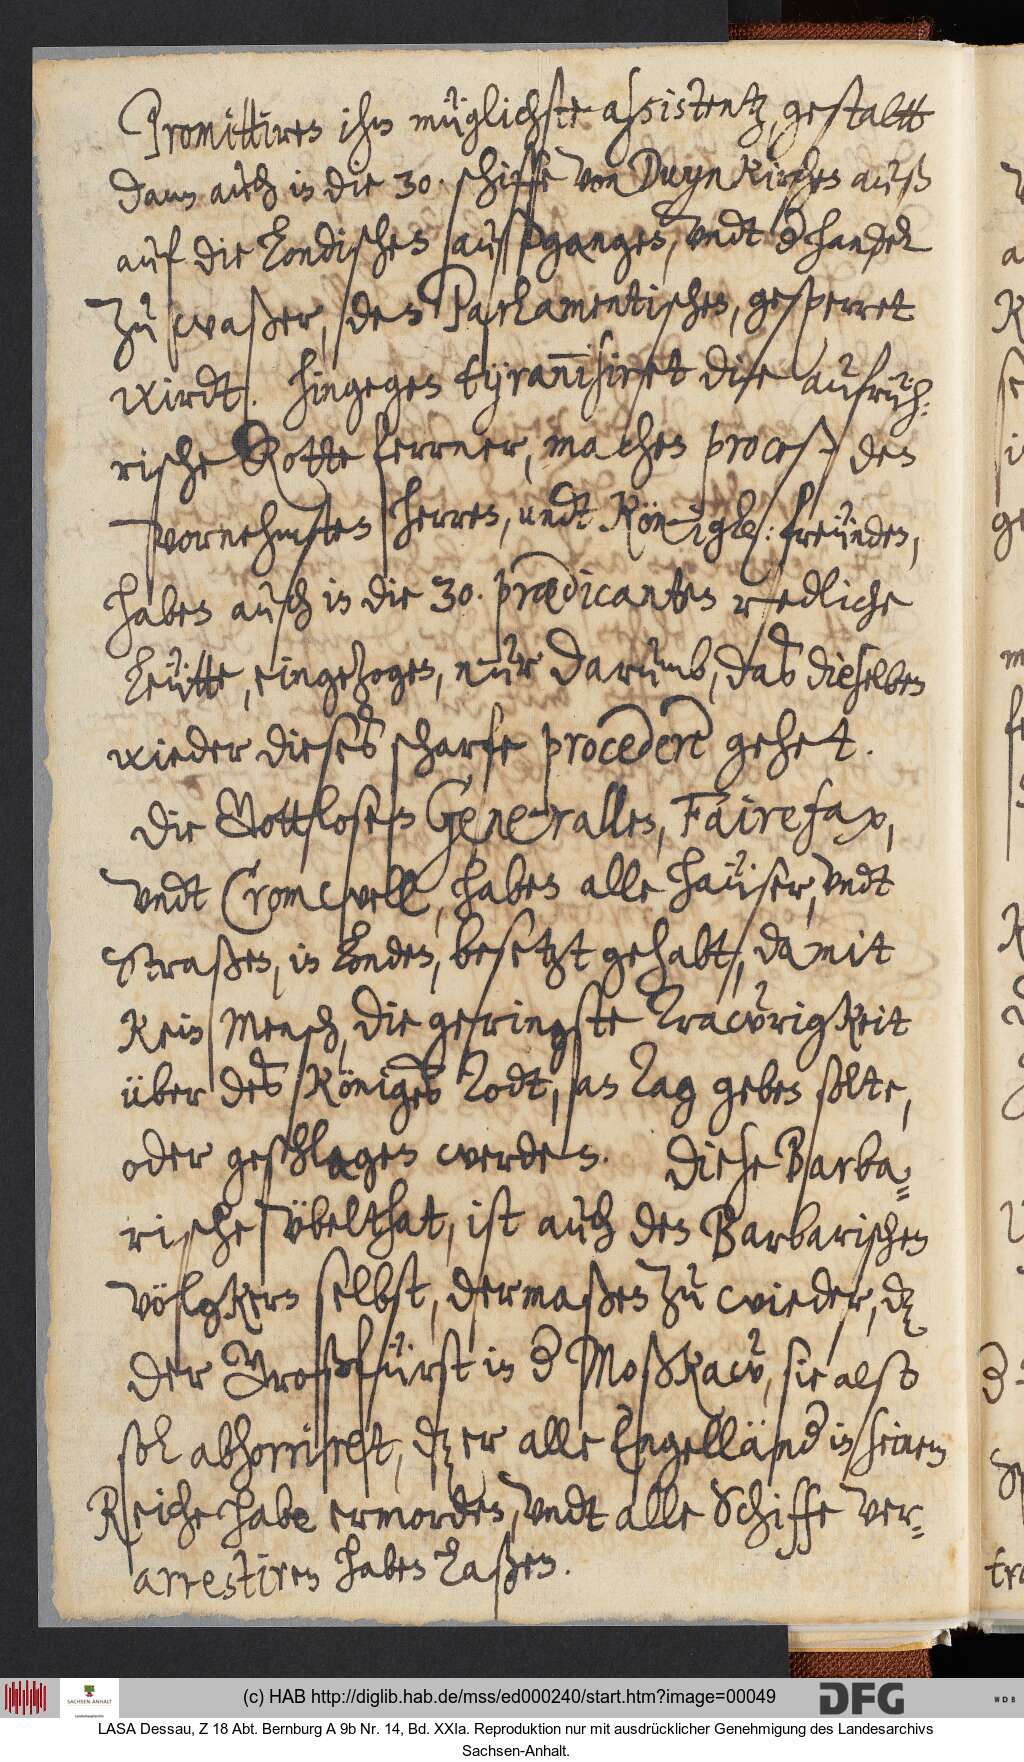 Promittiren ihm müglichste assistentz, gestaltt
dann auch in die 30. schiffe von Duynkirchen auß
auf die Londischen außgangen, undt d handel
zu waßer, den Parlamentischen, gesperret
wirdt. Hingegen tÿrannisiret die aufrüh:
rische Rotte ferrner, machen proceß den
vornehmsten herren, undt Königl: freünden,
haben auch in die 30. prædicanten redliche
Leütte, eingezogen, nur darumb, das dieselben
wieder dieses scharfe procedere gehet.
Die Gottlosen Generallen, Fairefax,
undt Cromwell, haben alle haüser, undt
Straßen, in Londen, besetzt gehabt, damit
kein Mensch, die geringste Trawrigkeit
über des Königes Todt, an Tag geben solte,
oder geschlagen werden. Diese Barba=
rische übelthat, ist auch den Barbarischen
völgkern selbst, dermaßen zu wieder, dz
der Großfürst in d Moßkaw, sie also
sol abhorriret, dz er alle Engelländ in seinem
Reiche habe ermorden, undt alle Schiffe ver=
arrestiren haben laßen.
(c) HAB http://diglib.hab.de/mss/ed000240/start.htm?image=00049
SACHSEN-ANHALT
DFG
WDB
LASA Dessau, Z 18 Abt. Bernburg A 9b Nr. 14, Bd. XXIa. Reproduktion nur mit ausdrücklicher Genehmigung des Landesarchivs
Sachsen-Anhalt.